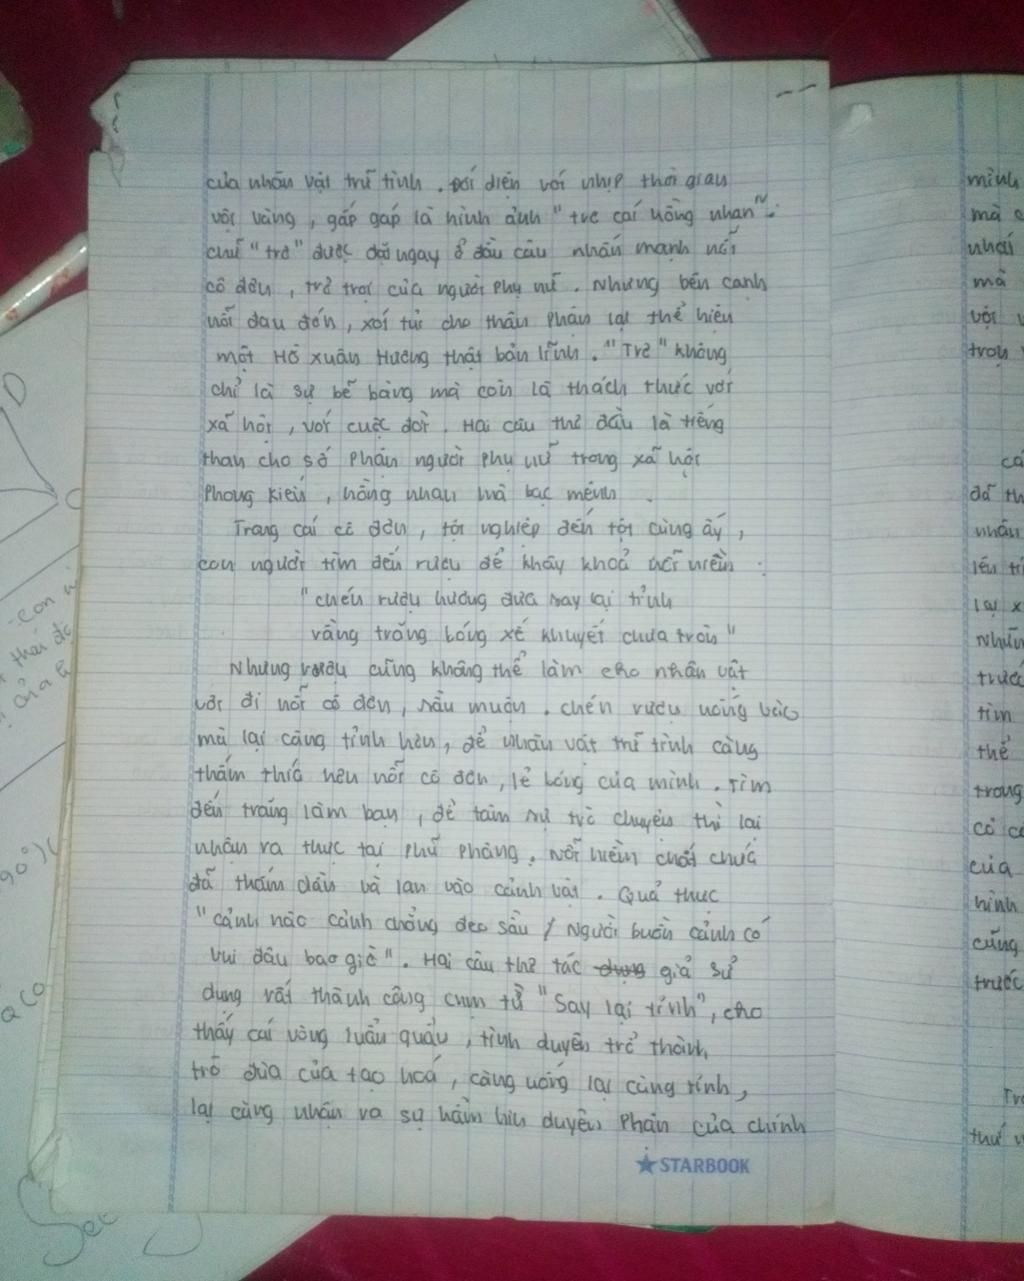 của nhân vật trữ tình. Đối diện với nhịp thời gian
vội vàng, gấp gáp là hình ảnh "trơ cái hồng nhan".
chữ "trơ" được đặt ngay ở đầu câu nhấn mạnh nỗi
cô đơn, trơ trọi của người phụ nữ. Nhưng bên cạnh
nỗi đau đớn, xót tủi cho thân phận lại thể hiện
một Hồ Xuân Hương thật bản lĩnh. "Trơ" không
chỉ là sự bẽ bàng mà còn là thách thức với
xã hội, với cuộc đời. Hai câu thơ đầu là tiếng
than cho số phận người phụ nữ trong xã hội
phong kiến, hồng nhan mà bạc mệnh.
Trong cái cô đơn, tội nghiệp đến tột cùng ấy,
con người tìm đến rượu để khây khoả nỗi niềm:
"chén rượu hương đưa say lại tỉnh
vầng trăng bóng xế khuyết chưa tròn"
Nhưng rượu cũng không thể làm cho nhân vật
vơi đi nỗi cô đơn, sầu muộn. chén rượu uống vào
mà lại càng tỉnh hơn, để nhân vật trữ tình càng
thấm thía hơn nỗi cô đơn, lẻ bóng của mình. Tìm
đến trăng làm bạn, để tâm sự chuyện thì lại
nhận ra thực tại phũ phàng. Nỗi niềm chất chứa
đã thấm dần và lan vào cảnh vật. Quả thực
"cảnh nào cảnh chẳng đeo sầu / Người buồn cảnh có
vui đâu bao giờ". Hai câu thơ tác giả sử
dụng rất thành công cụm từ "Say lại tỉnh", cho
thấy cái vòng luẩn quẩn, tình duyên trở thành
trò đùa của tạo hoá, càng uống lại càng tỉnh,
lại càng nhận ra sự hẩm hiu duyên phận của chính
STARBOOK
mình
mà
nhói
mà
với
trọn
đã
nhân
lại
trước
tìm
thể
trong
của
hình
cũng
trước
thứ